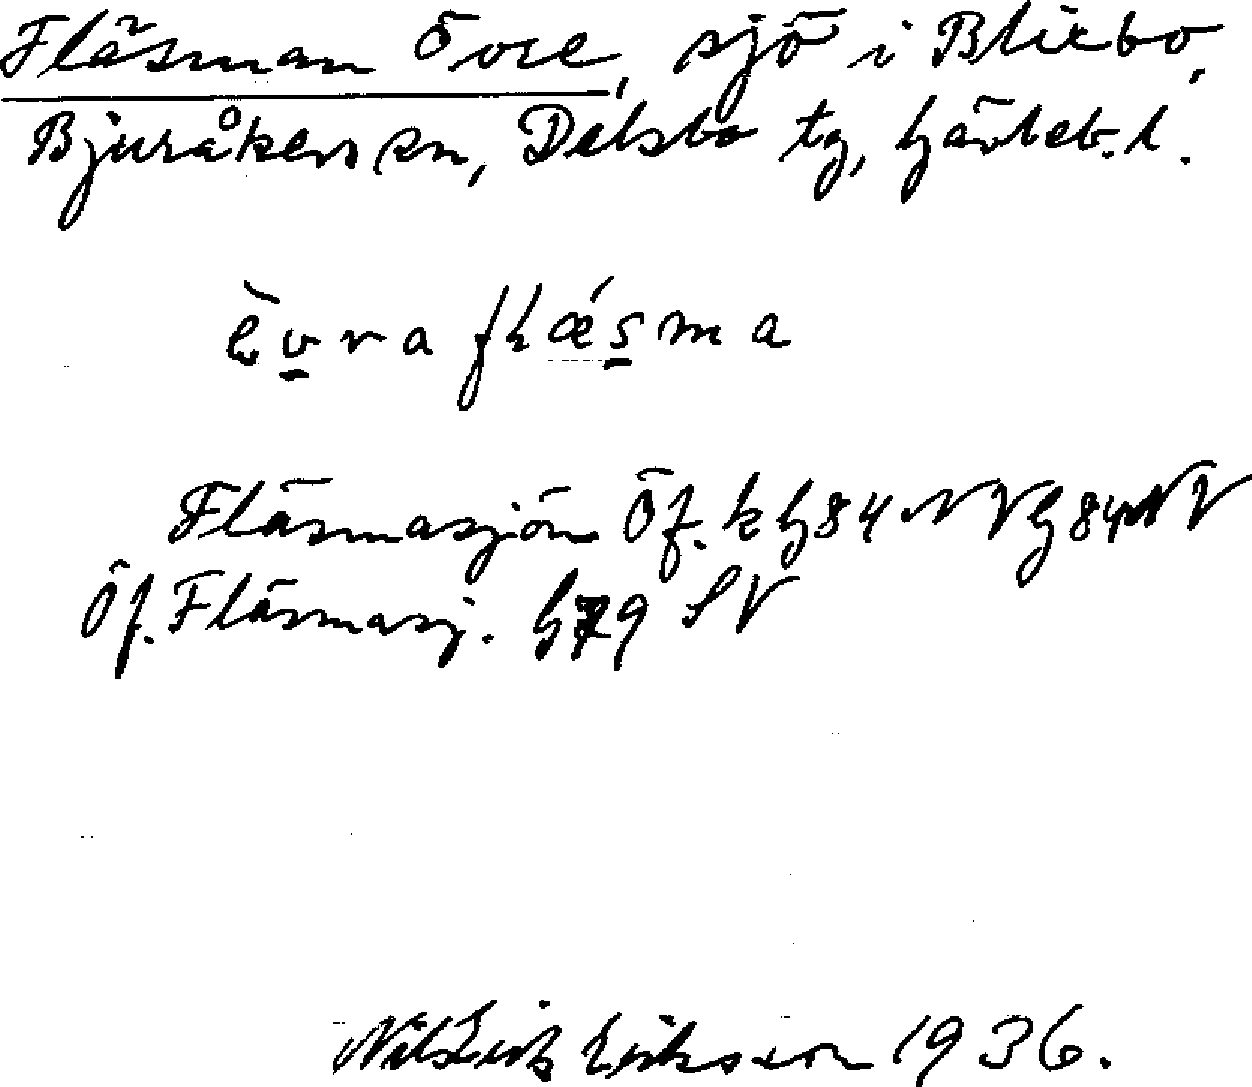 Fläsman Övre, sjö i Bricbo,
Bjuråkers sn, Delsbo tg, Gävleb. l.
èvra flǽsma
Fläsmasjön Öf. k G84 NV G 84 NV
Öf. Fläsmasj. G79 SV
Nils Erik Eriksson 1936.